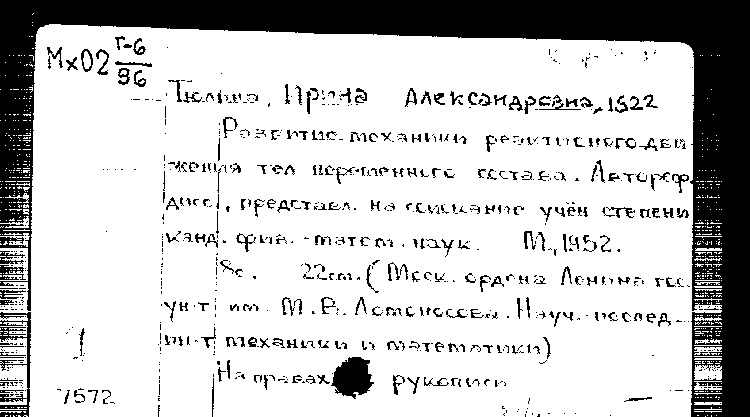 Мх02 Г-6
96
Тюлина, Ирина Александровна, 1922
Развитие механики реактивного дви-
жения тел переменного состава. Автореф.
дисс., представл. на соискание учён степени
канд. физ.-матем. наук. М., 1952.
8с. 22см. (Моск. ордена Ленина гос.
ун-т им. М.В. Ломоносова. Науч.-исслед.
ин-т механики и математики)
На правах рукописи
1
7572